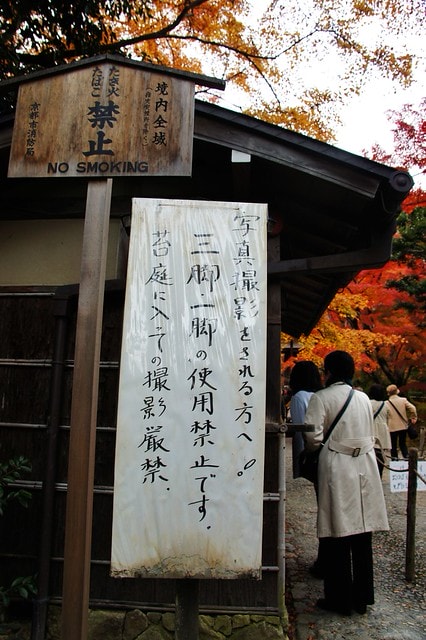 境内全域
たき火
たばこ
禁止
京都市消防局
NO SMOKING
写真撮影をされる方へ。
三脚一脚の使用禁止です。
苔庭に入っての撮影厳禁.